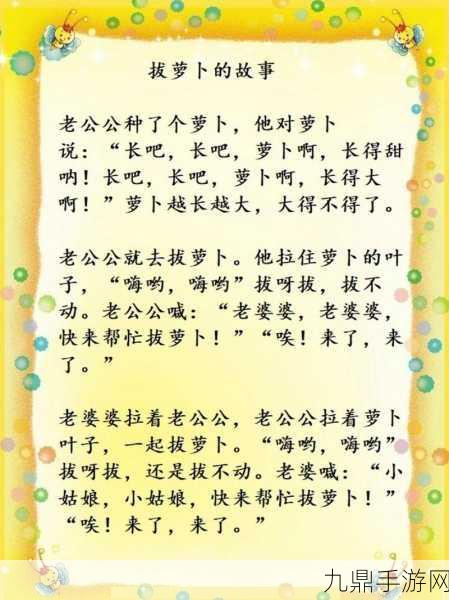 拔萝卜的故事
老公公种了个萝卜，他对萝卜
说：“长吧，长吧，萝卜啊，长得甜
呐！长吧，长吧，萝卜啊，长得大
啊！”萝卜越长越大，大得不得了。
老公公就去拔萝卜。他拉住萝卜的叶
子，“嗨哟，嗨哟”拔呀拔，拔不
动。老公公喊：“老婆婆，老婆婆，
快来帮忙拔萝卜！”“唉！来了，来
了。”
老婆婆拉着老公公，老公公拉着萝卜
叶子，一起拔萝卜。“嗨哟，嗨哟”
拔呀拔，还是拔不动。老婆喊：“小
姑娘，小姑娘，快来帮忙拔萝卜！”
“唉！来了，来了。”
九鼎手游网